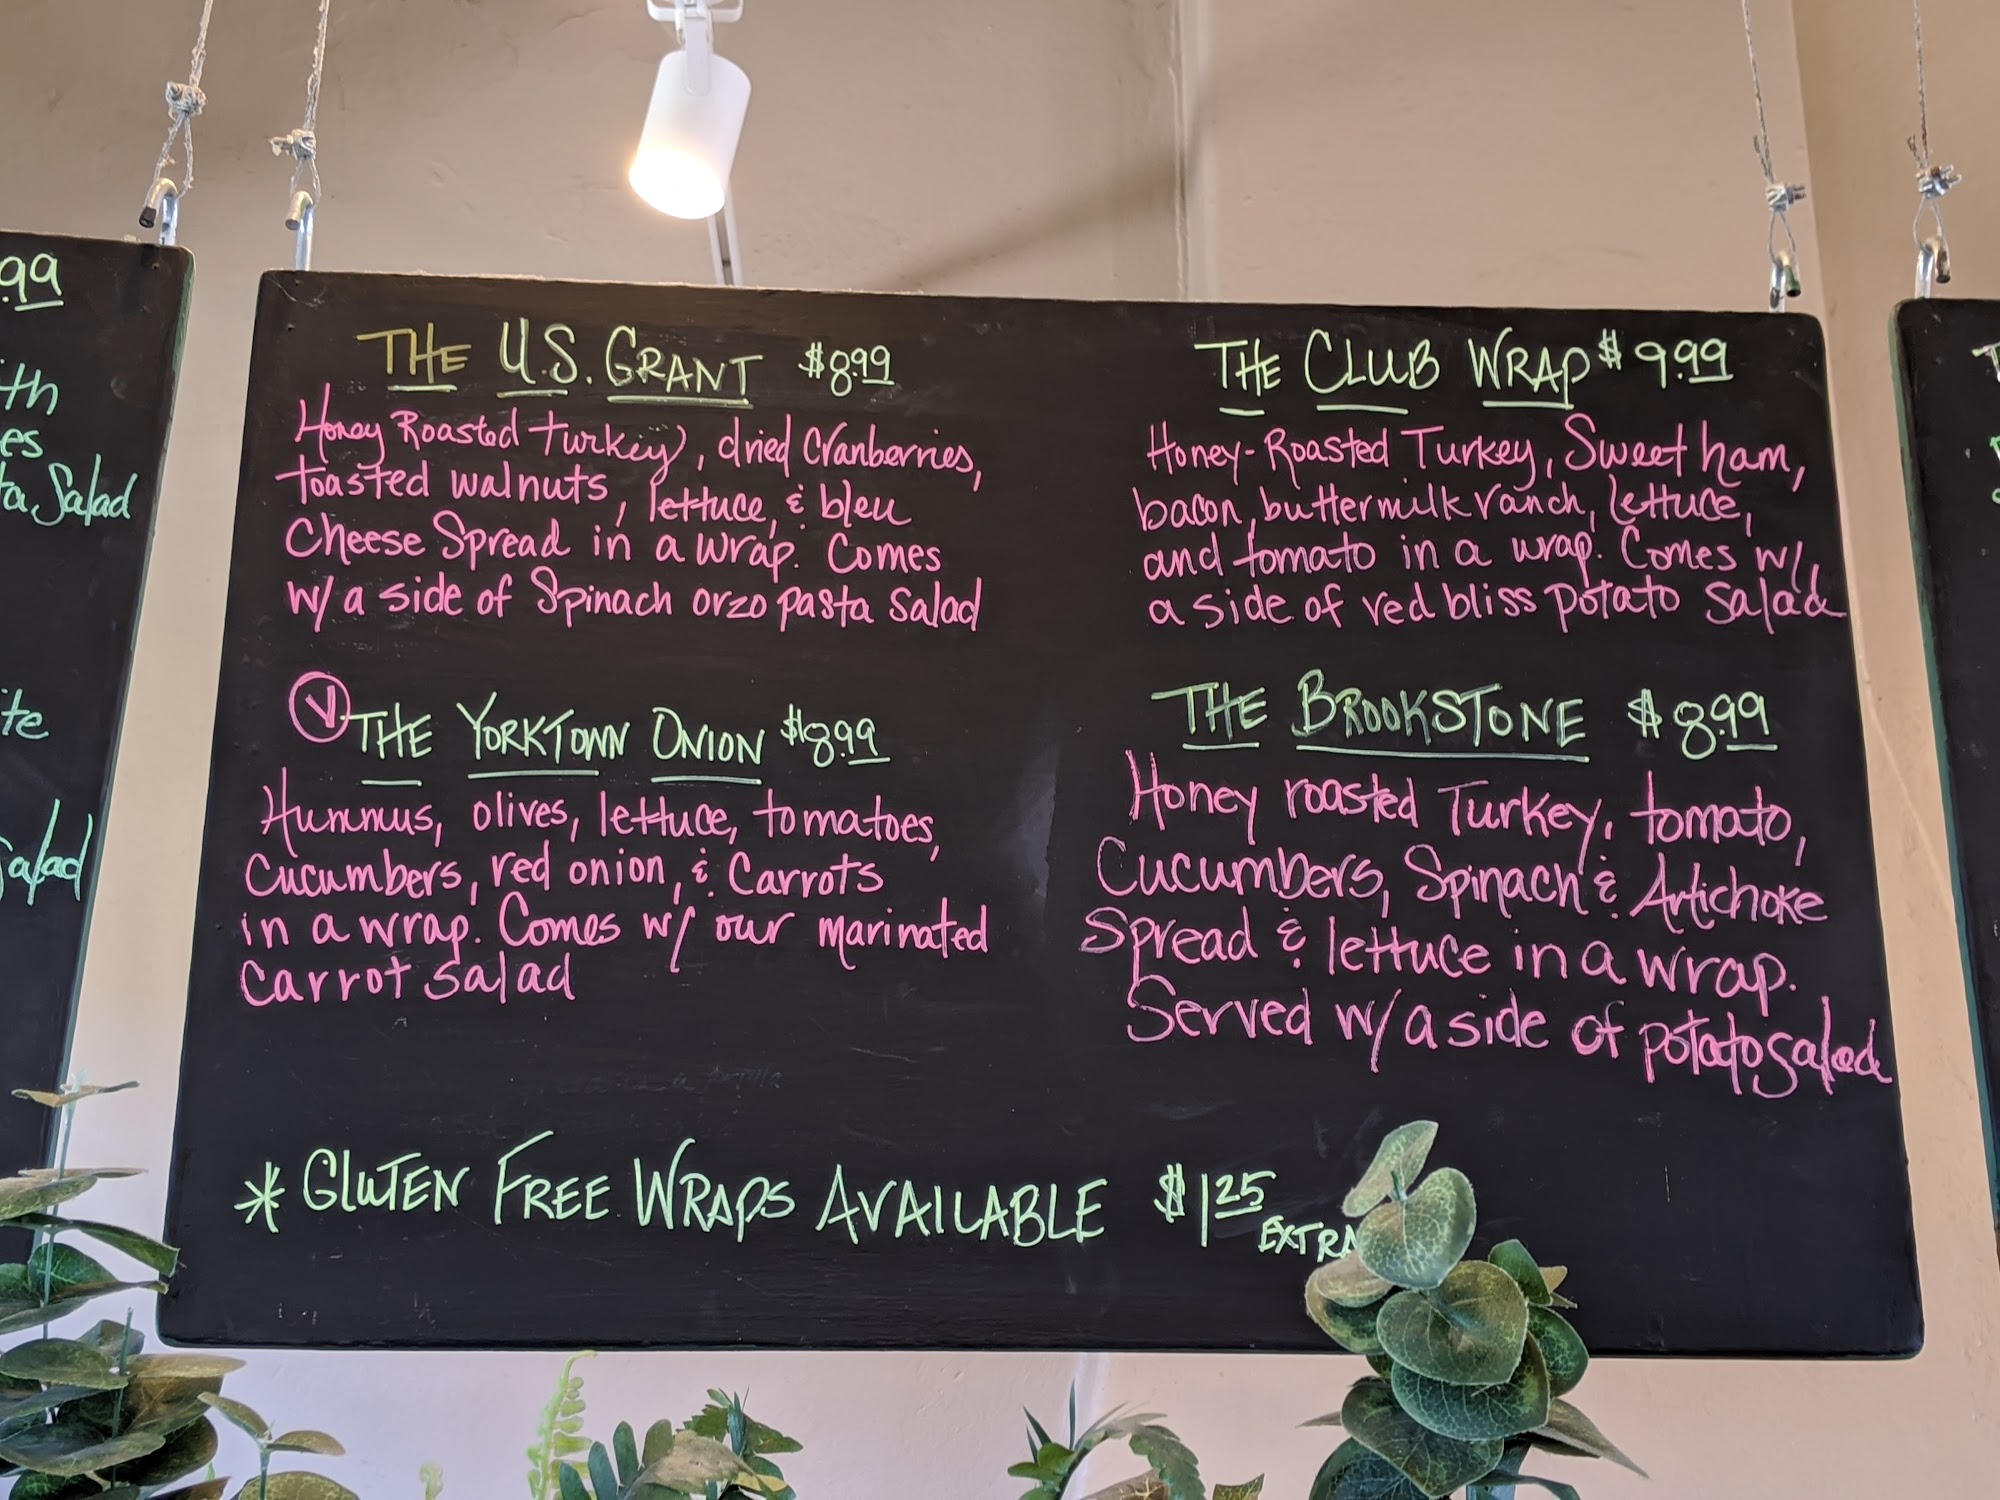 99
ith
es
ta Salad
te
Salad
THE U.S. GRANT $8.99
Honey Roasted turkey, dried Cranberries,
toasted walnuts, lettuce, & bleu
Cheese Spread in a wrap. Comes
w/ a side of Spinach orzo pasta salad
V THE YORKTOWN ONION $8.99
Hummus, olives, lettuce, tomatoes,
Cucumbers, red onion, & Carrots
in a wrap. Comes w/ our marinated
Carrot salad
THE CLUB WRAP $9.99
Honey-Roasted Turkey, Sweet ham,
bacon, buttermilk ranch, lettuce,
and tomato in a wrap. Comes w/
a side of red bliss potato salad
THE BROOKSTONE $8.99
Honey roasted Turkey, tomato,
Cucumbers, Spinach & Artichoke
Spread & lettuce in a wrap.
Served w/ a side of potato salad
* GLUTEN FREE WRAPS AVAILABLE $1.25
EXTRA